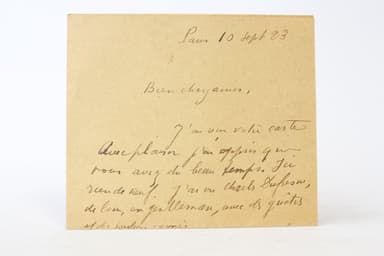 Paris 10 Sept 23
Bien chers amis,
J'ai vu votre carte
Avec plaisir j'ai appris que
vous avez du beau temps. Ici
rien de neuf. J'ai vu Charles Dufresne,
de loin, en gentleman, avec des guêtres
et des